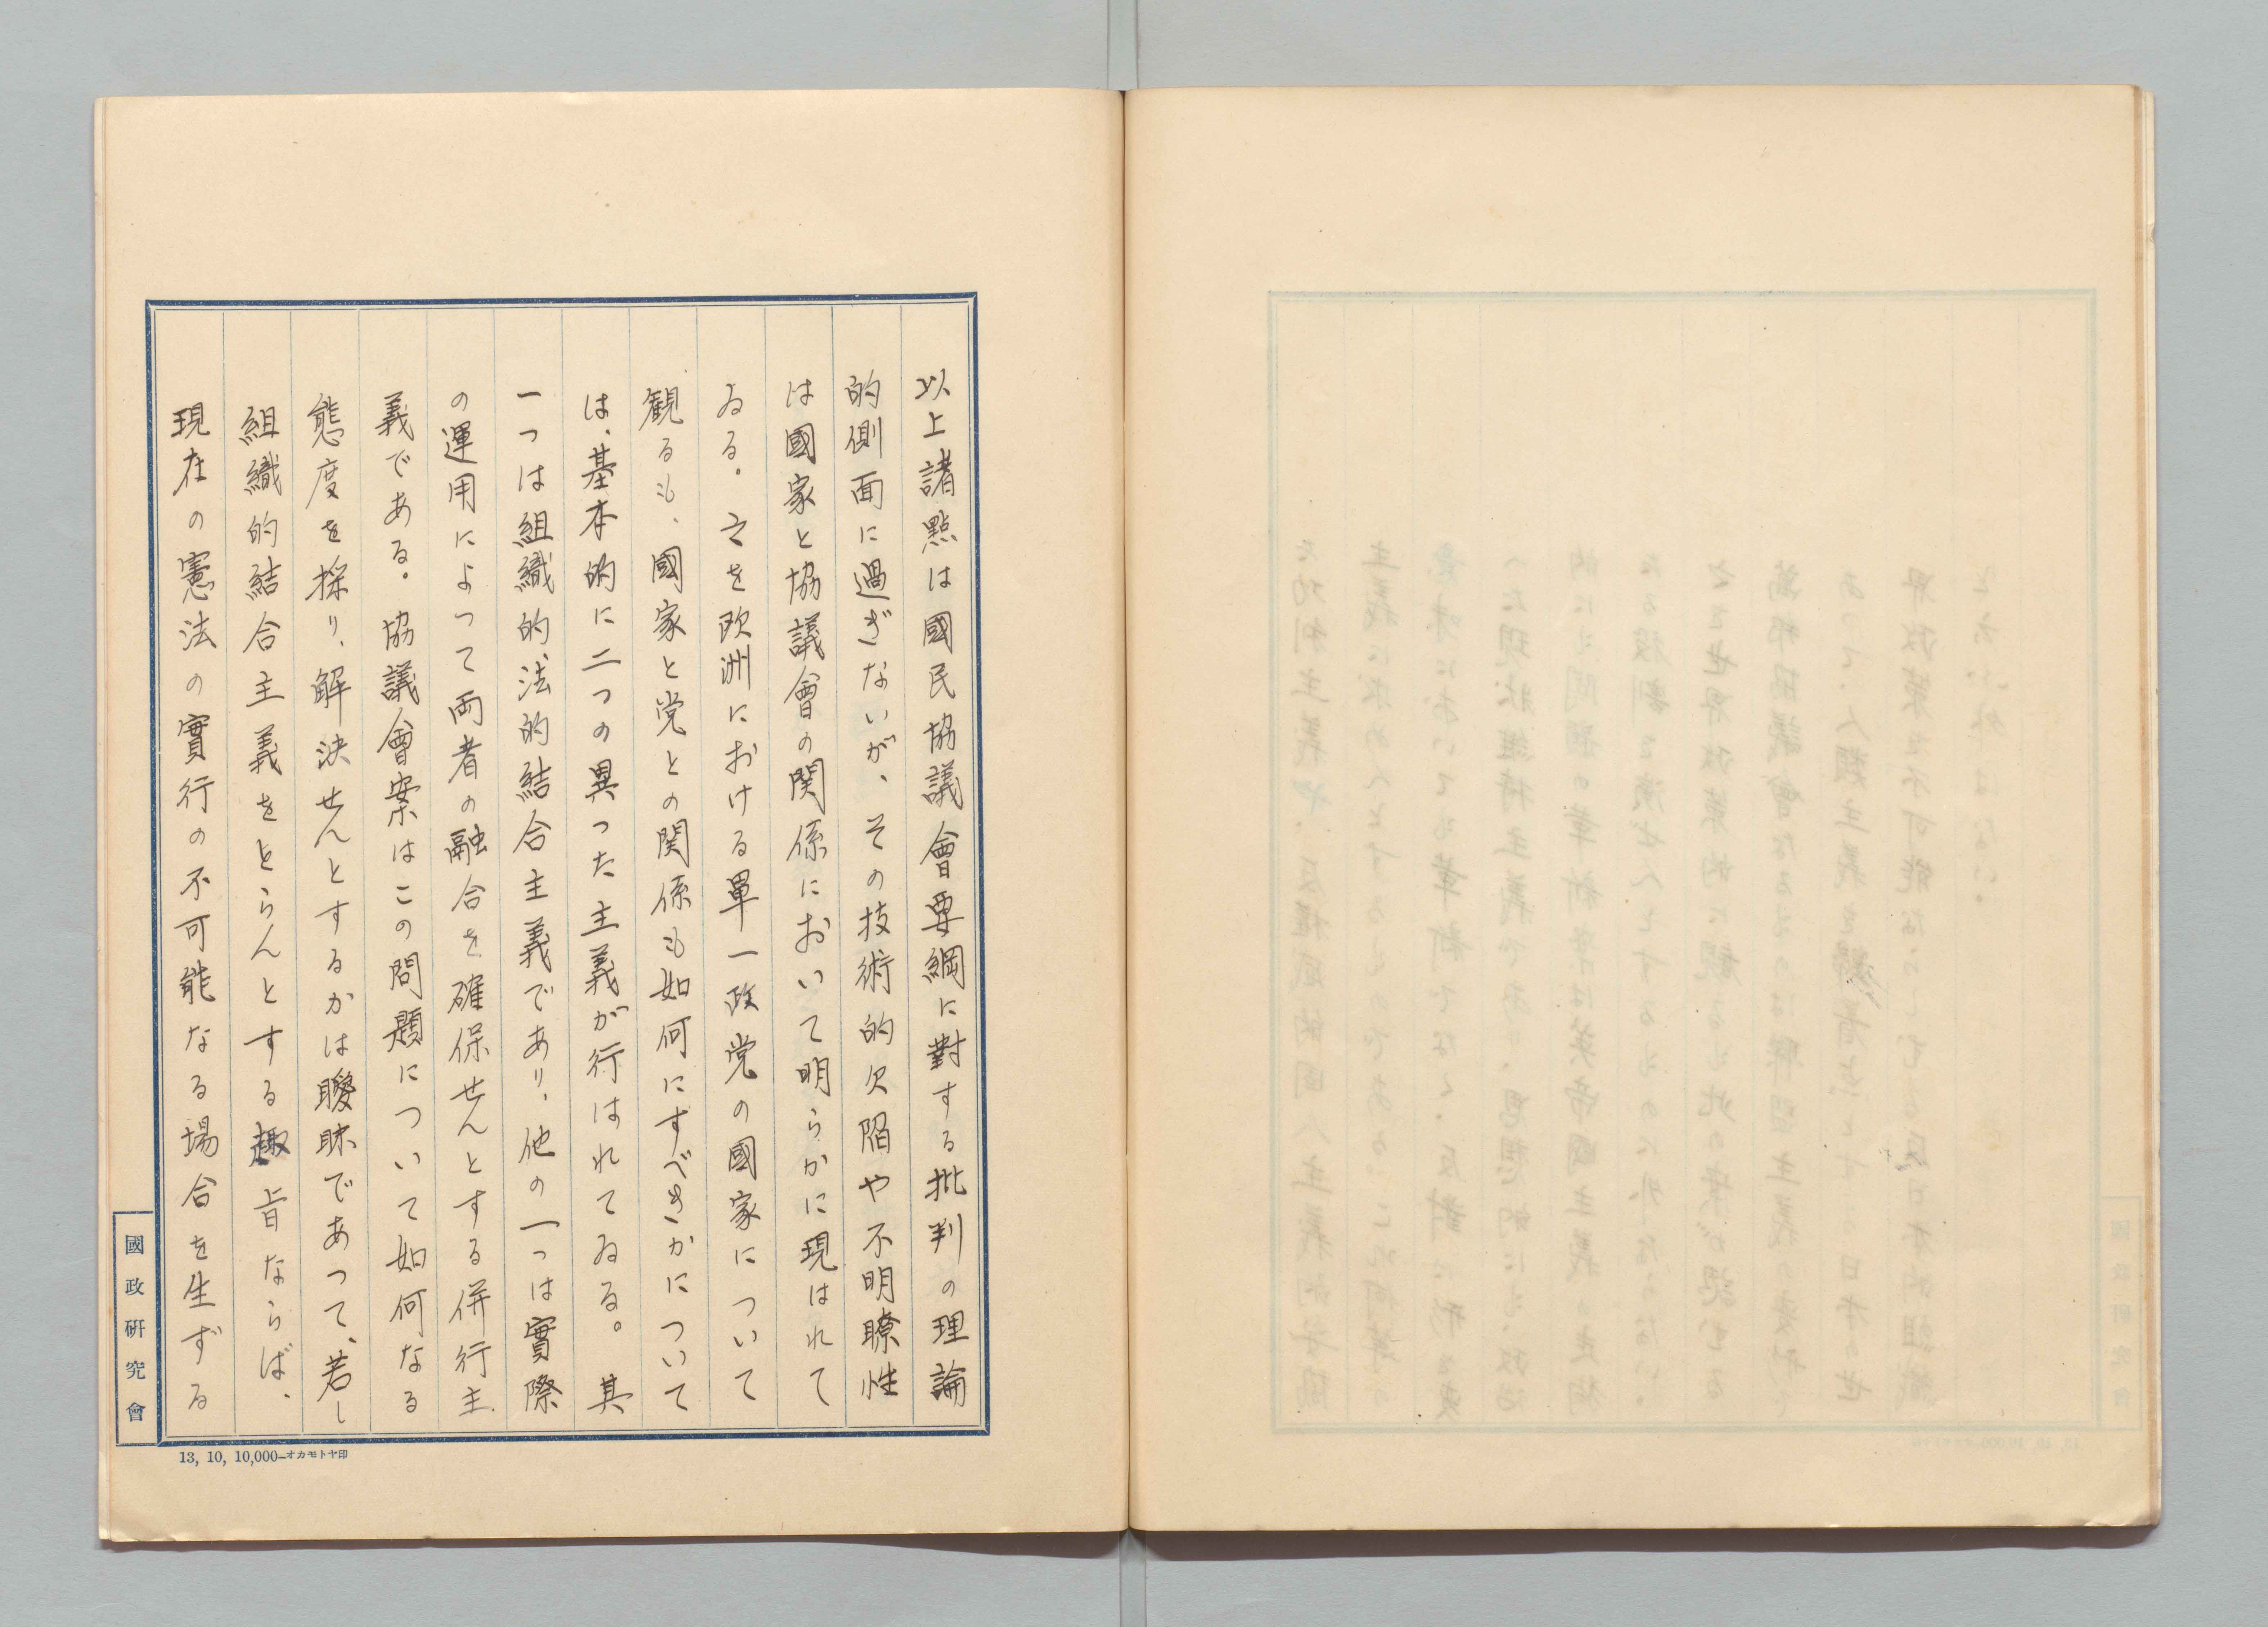 以上諸點は國民協議會要綱に對する批判の理論
的側面に過ぎないが、その技術的欠陥や不明瞭性
は國家と協議會の関係において明らかに現はれて
ゐる。之を欧洲における單一政党の國家について
観るも、國家と党との関係も如何にすべきかについて
は、基本的に二つの異つた主義が行はれてゐる。其
一つは組織的、法的結合主義であり、他の一つは實際
の運用によつて両者の融合を確保せんとする併行主
義である。協議會案はこの問題について如何なる
態度を採り、解決せんとするかは曖昧であつて、若し
組織的結合主義をとらんとする趣旨ならば、
現在の憲法の實行の不可能なる場合を生ずる
國政研究會
13, 10, 10,000—オカモトヤ印